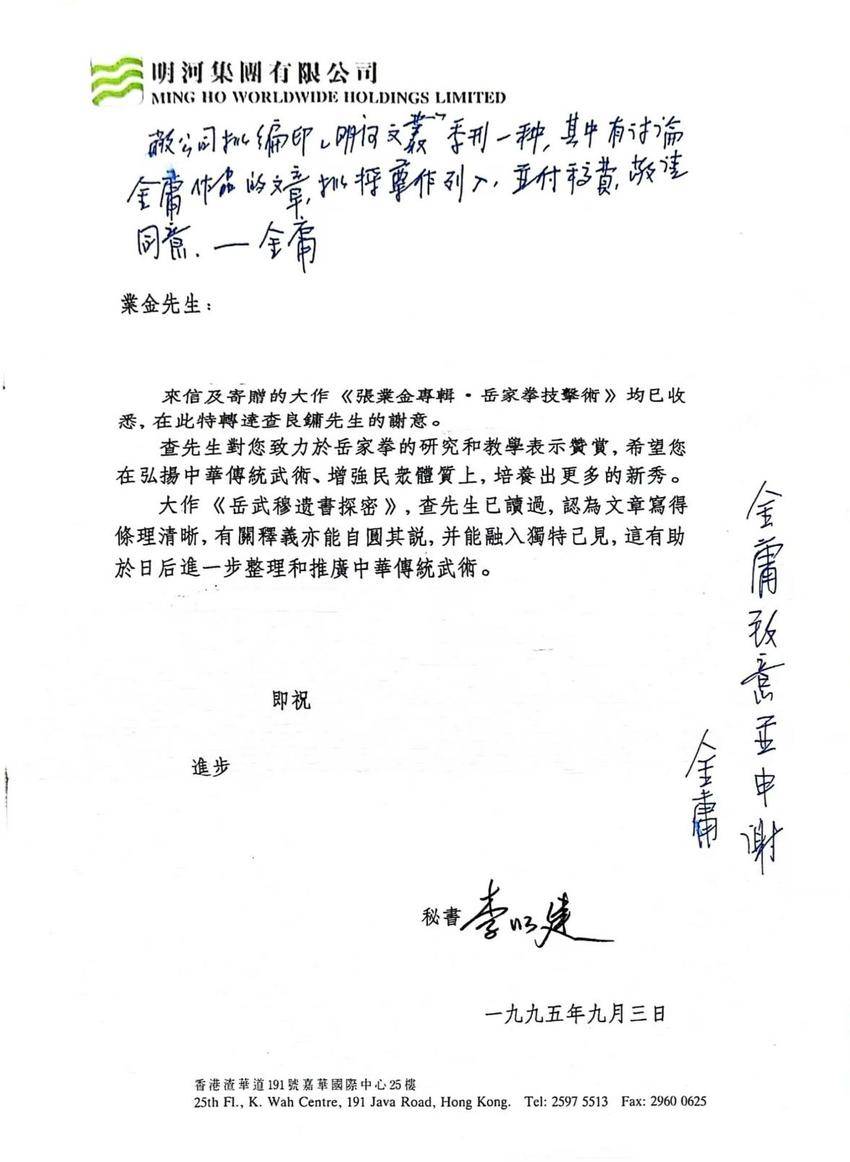 明河集團有限公司
MING HO WORLDWIDE HOLDINGS LIMITED
敝公司擬編印「明河文叢」季刊一种,其中有讨论
金庸作品的文章,擬将尊作列入,並付稿費,敬達
同意.—金庸
業金先生:
來信及寄贈的大作《張業金專輯·岳家拳技擊術》均已收
悉,在此特轉達查良鏞先生的謝意。
查先生對您致力於岳家拳的研究和教學表示贊賞,希望您
在弘揚中華傳統武術、增強民衆體質上,培養出更多的新秀。
大作《岳武穆遺書探密》,查先生已讀過,認為文章寫得
條理清晰,有關釋義亦能自圓其説,并能融入獨特己見,這有助
於日后進一步整理和推廣中華傳統武術。
金庸致意並申谢
金庸
即祝
進步
秘書 李以建
一九九五年九月三日
香港渣華道191號嘉華國際中心25樓
25th Fl., K. Wah Centre, 191 Java Road, Hong Kong. Tel: 2597 5513 Fax: 2960 0625